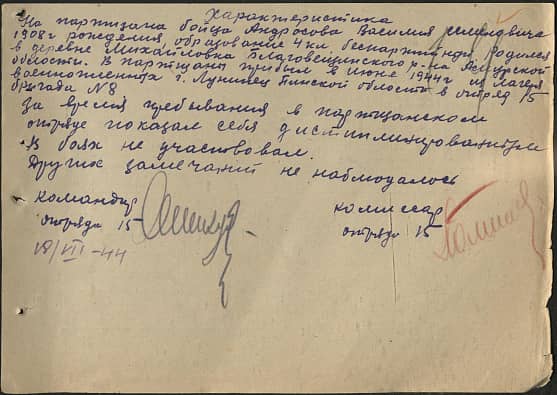 Характеристика
На партизана бойца Андросова Василия Семеновича
1908г рождения, образование 4 кл. беспартийный. Родился
в деревне Михайловка Благовещинского р-на Амурской
области. В партизаны прибыл в июне 1944г из лагеря
военнопленных г. Лунинец Пинской области в отряд 15
бригада №8
За время пребывания в партизанском
отряде показал себя дистиплинированным
В боях не участвовал.
Других замечаний не наблюдалось
командир
отряда 15
комиссар
отряда 15
18/VII-44